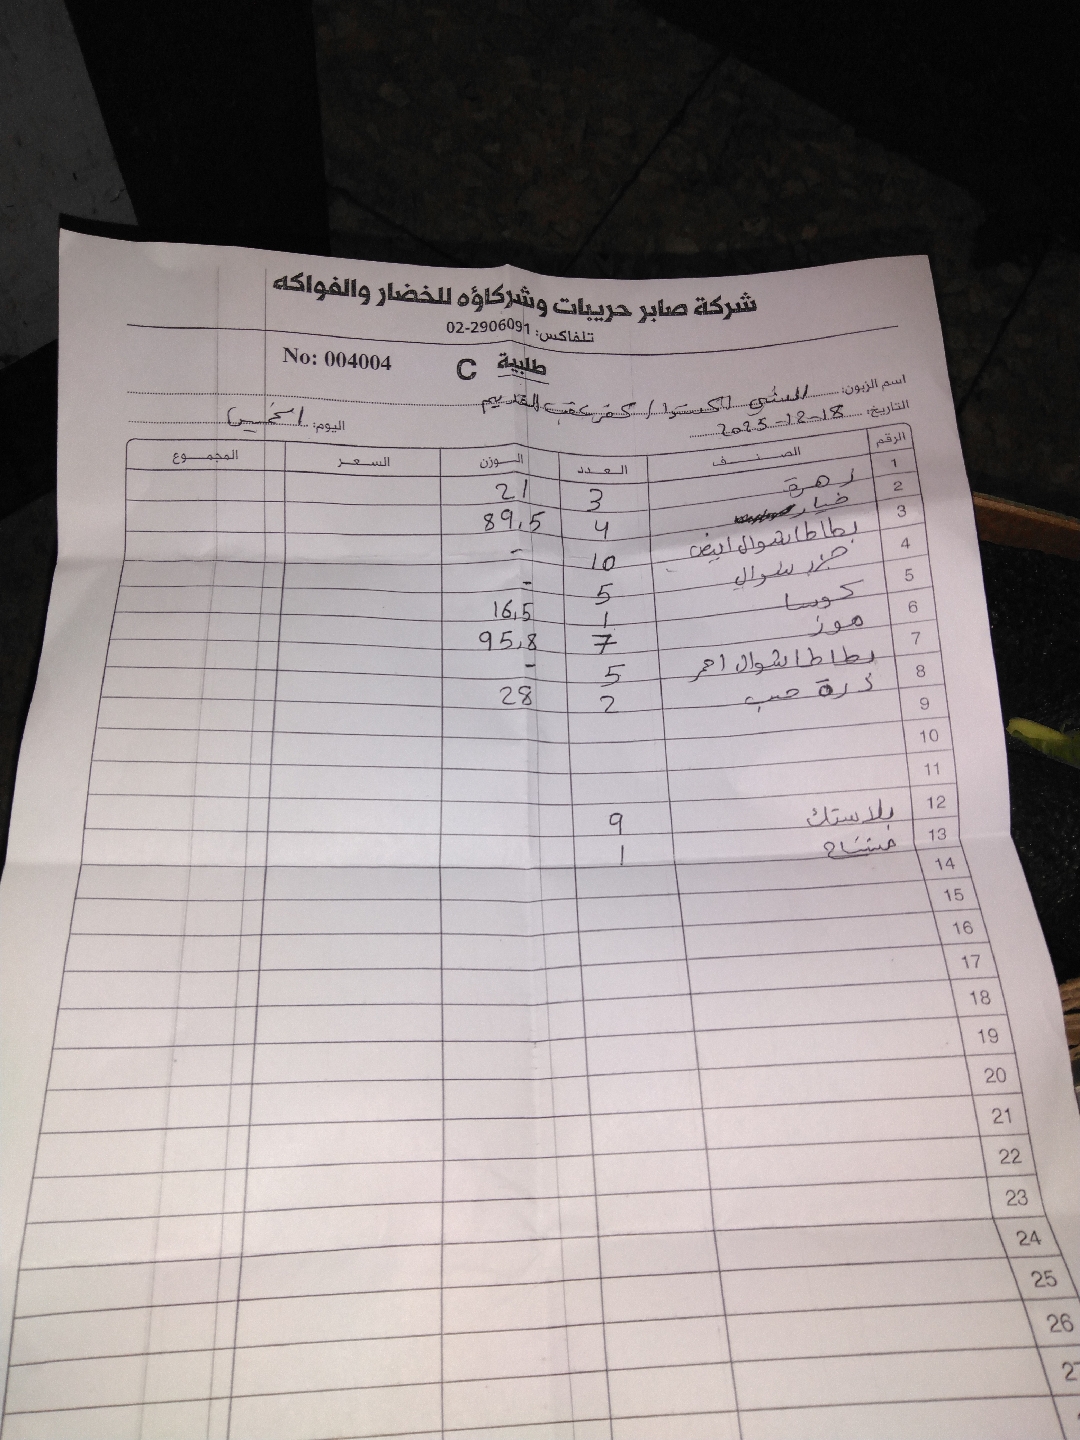 شركة صابر حريبات وشركاؤه للخضار والفواكه
تلفاكس: 02-2906091
طلبية C No: 004004
اسم الزبون: السني اكسترا / كفر عقب القديم
التاريخ: 18-12-2025 اليوم: الخميس
الرقم الصنف العدد الوزن السعر المجموع
1 زهرة 3 21
2 خيار 4 89,5
3 بطاطا شوال ابيض 10 -
4 جزر شوال 5 -
5 كوسا 1 16,5
6 موز 7 95,8
7 بطاطا شوال احمر 5 -
8 ذرة حب 2 28
9
10
11
12 بلاستك 9
13 مشتاح 1
14
15
16
17
18
19
20
21
22
23
24
25
26